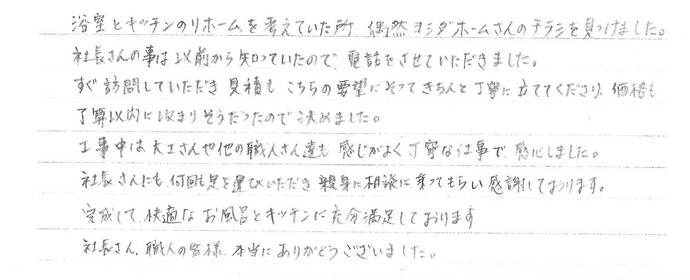 浴室とキッチンのリホームを考えていた所 偶然ヨシダホームさんのチラシを見つけました。
社長さんの事は以前から知っていたので、電話をさせていただきました。
すぐ訪問していただき 見積も こちらの要望にそってきちんと丁寧に立ててくださり、価格も
予算以内に収まりそうだったので決めました。
工事中は大工さんや他の職人さん達も 感じがよく丁寧な仕事で、感心しました。
社長さんにも、何回も足を運びいただき 親身に相談に乗ってもらい感謝しております。
完成して、快適な お風呂とキッチンに充分満足しております
社長さん、職人の皆様、本当に ありがとうございました。